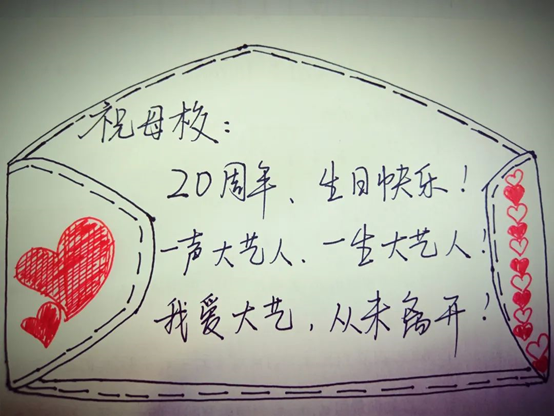 祝母校：
20周年、生日快乐！
一声大艺人、一生大艺人！
我爱大艺，从未离开！